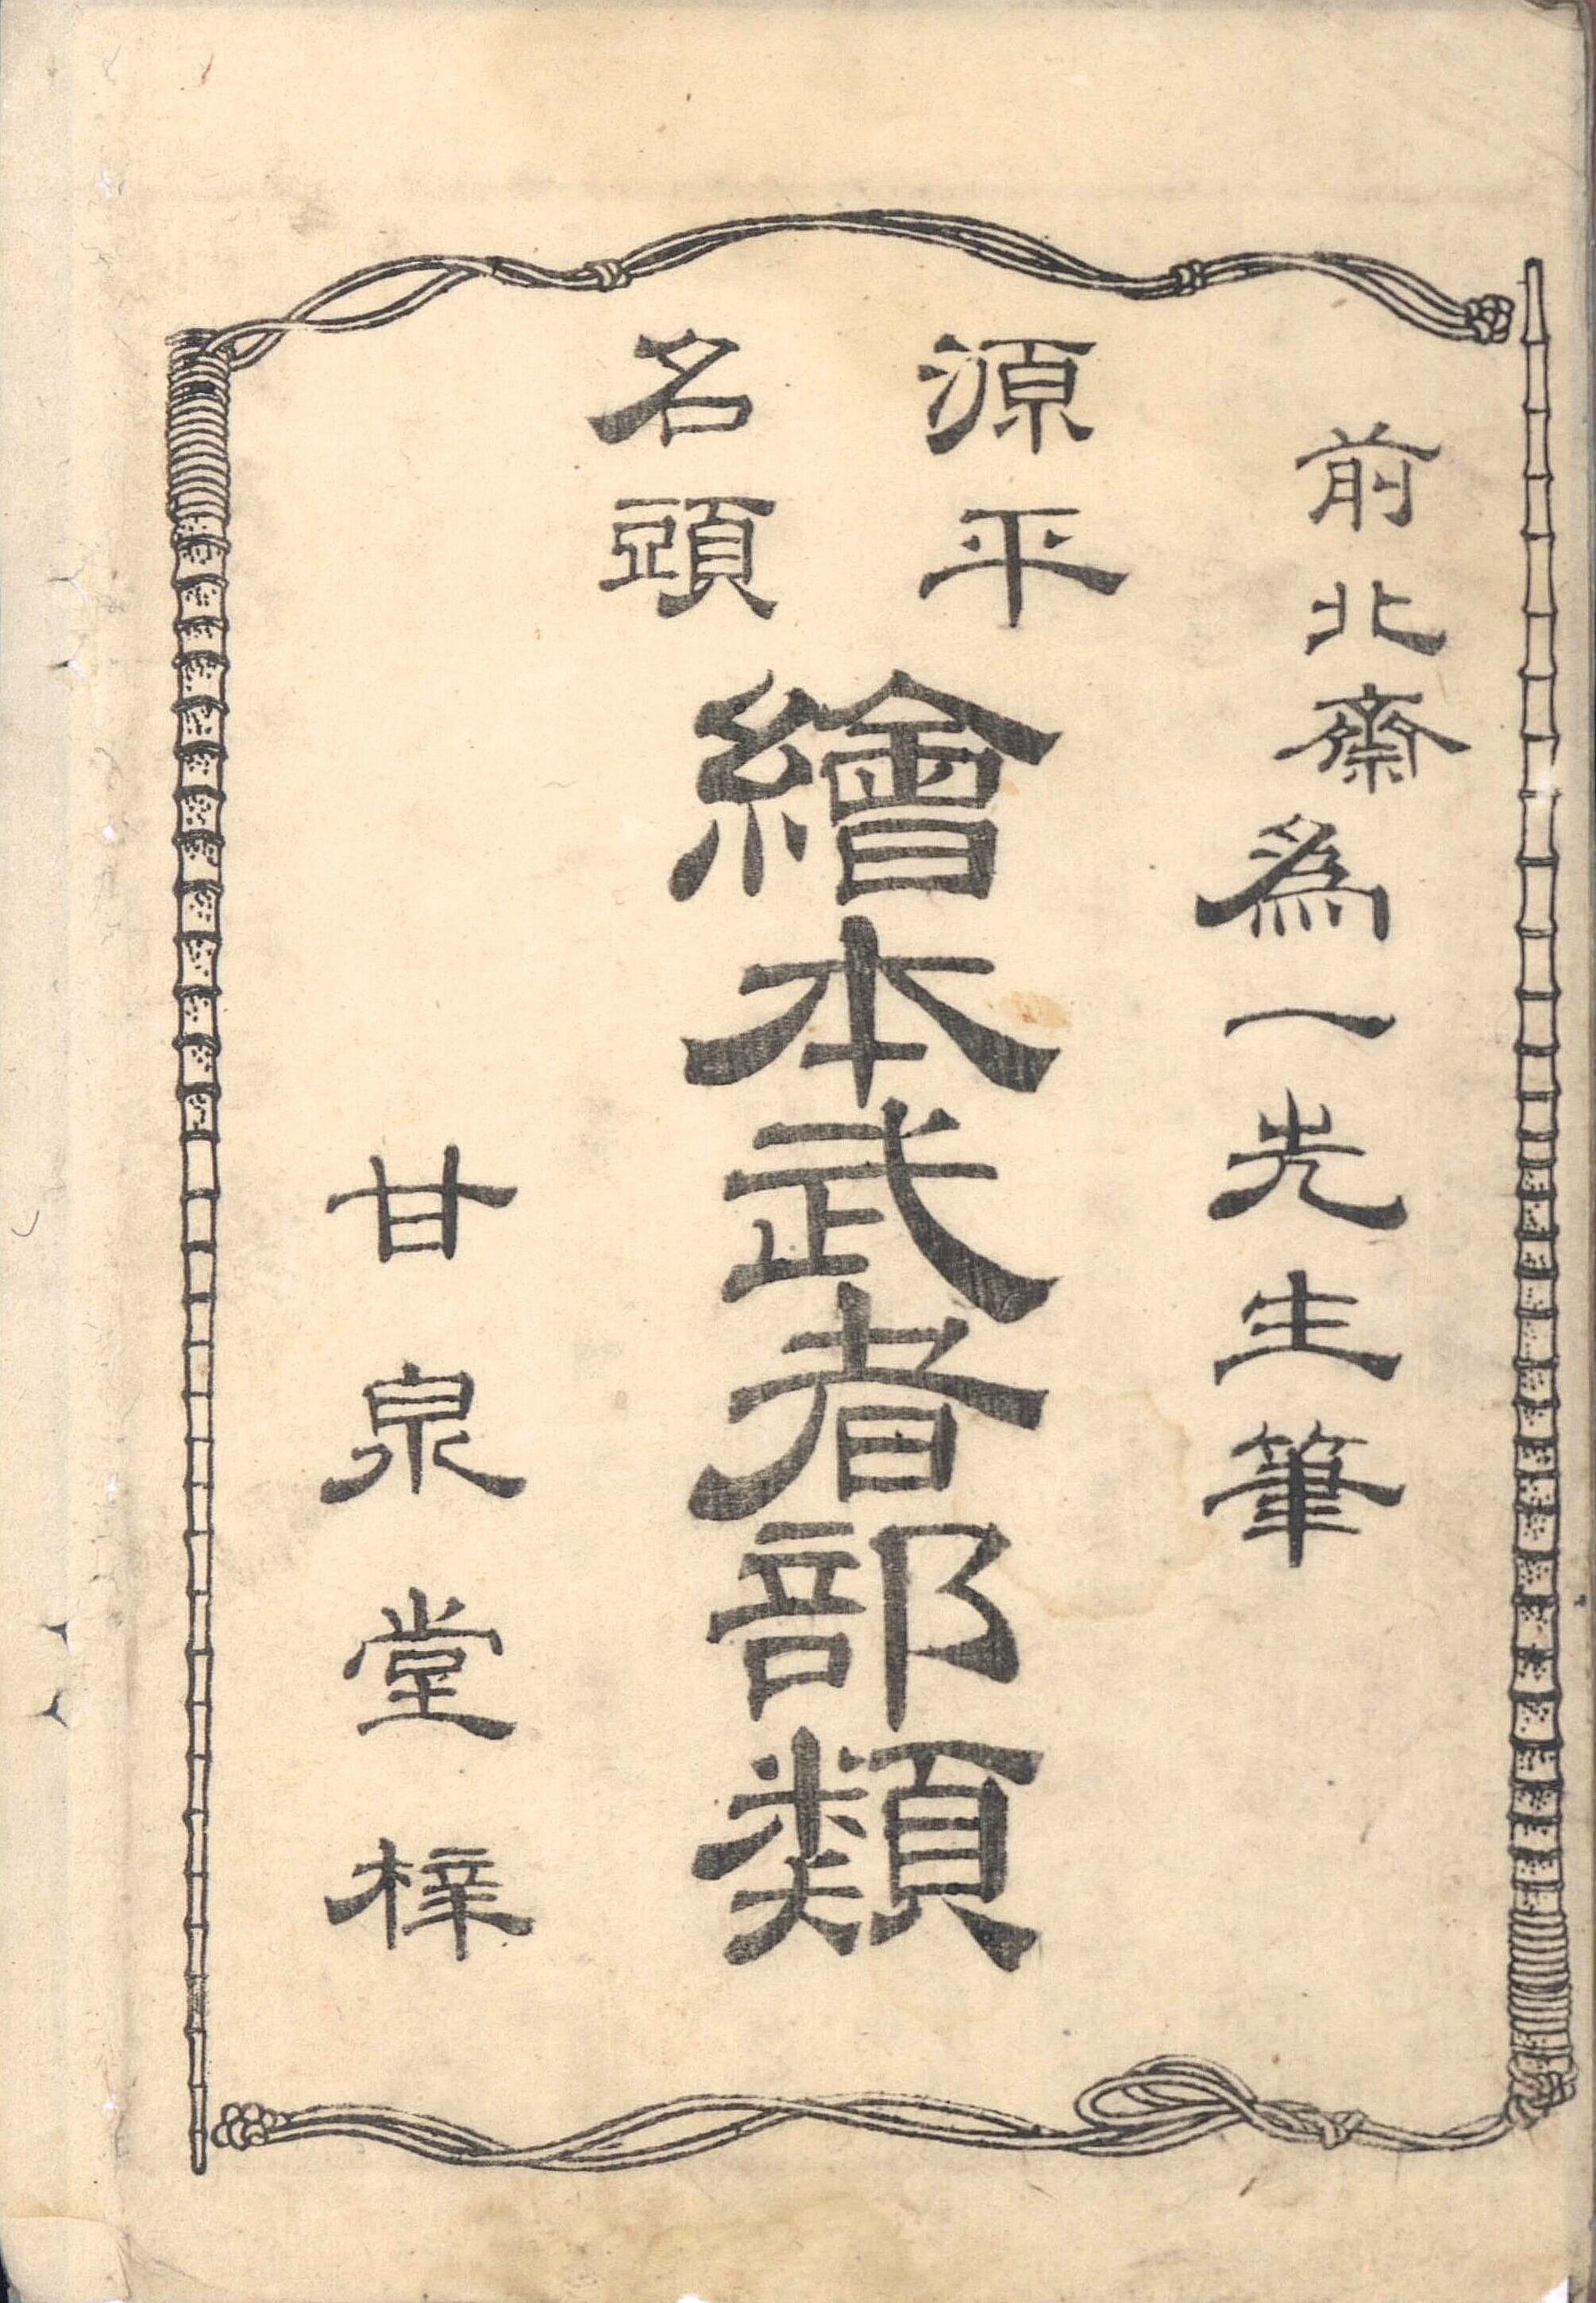 前北斎為一先生筆
源平
名頭
繪本武者部類
甘泉堂梓